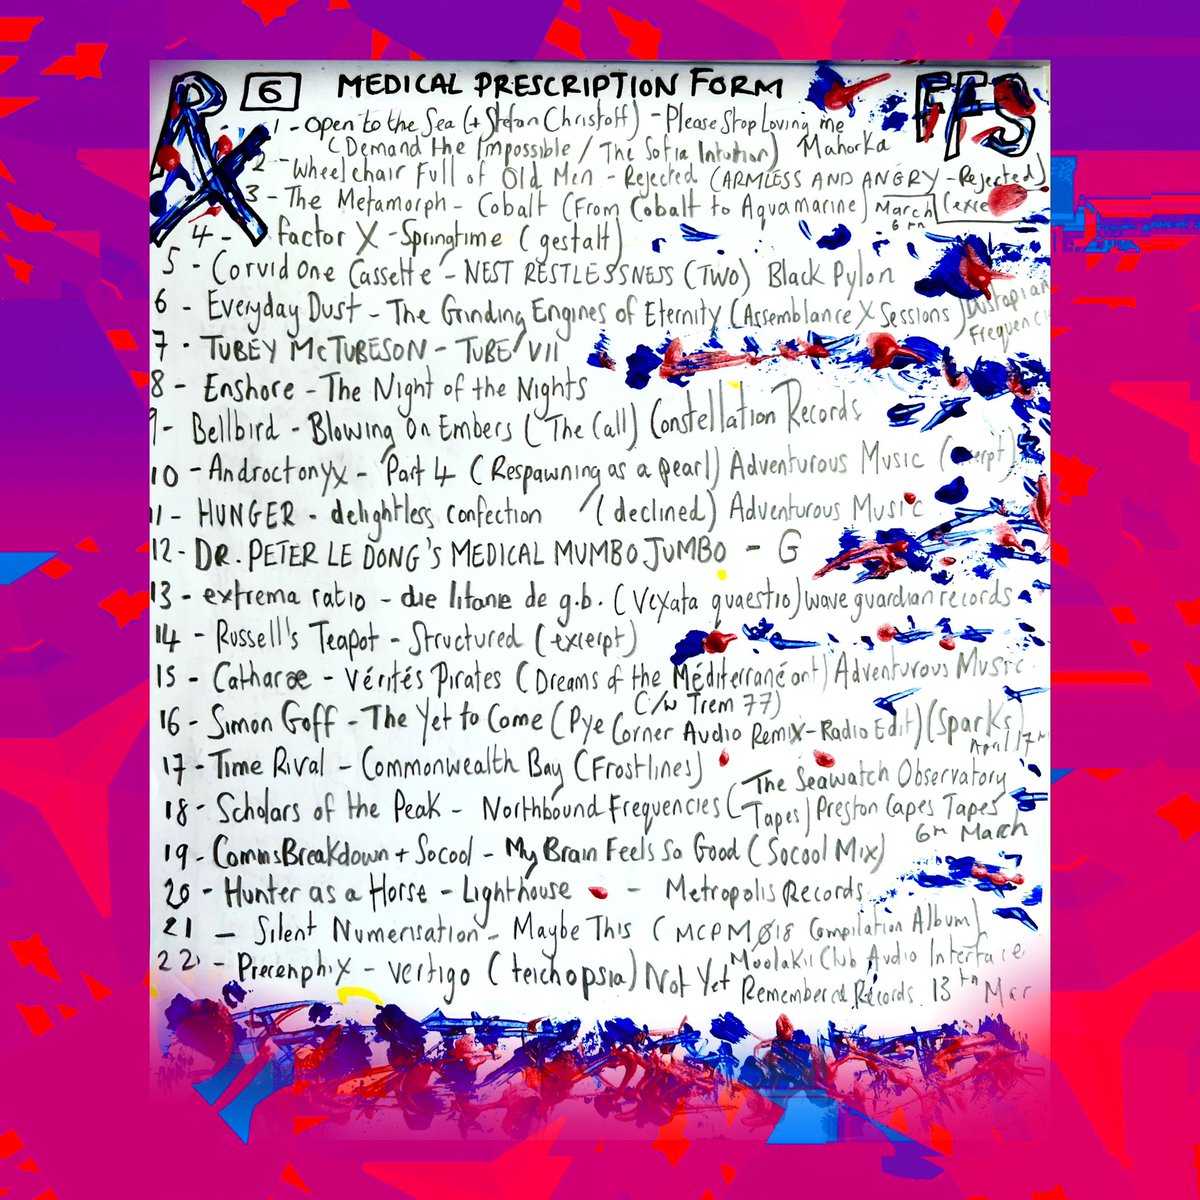 Rx 6 MEDICAL PRESCRIPTION FORM FFS
1 - Open to the Sea (+ Stefan Christoff) - Please Stop Loving me
(Demand the Impossible / The Sofia Intuition) Mahorka
2 - Wheelchair Full of Old Men - Rejected (ARMLESS AND ANGRY - Rejected)
3 - The Metamorph - Cobalt (From Cobalt to Aquamarine) March
4 - factor X - Springtime (gestalt)
5 - Corvid One Cassette - NEST RESTLESSNESS (TWO) Black Pylon
6 - Everyday Dust - The Grinding Engines of Eternity (Assemblance X Sessions)
7 - TUBEY MCTUBESON - TUBE VII
8 - Enshore - The Night of the Nights
9 - Bellbird - Blowing On Embers (The Call) Constellation Records
10 - Androctonyx - Part 4 (Respawning as a pearl) Adventurous Music
11 - HUNGER - delightless confection (declined) Adventurous Music
12 - DR. PETER LE DONG'S MEDICAL MUMBO JUMBO - G
13 - extrema ratio - die litanie de g.b. (Vexata quaestio) wave guardian records
14 - Russell's Teapot - Structured (excerpt)
15 - Catharæ - Vérités Pirates (Dreams of the Méditerranéant) Adventurous Music
C/w Trem 77)
16 - Simon Goff - The Yet to Come (Pye Corner Audio Remix - Radio Edit) (Sparks)
April 17th
17 - Time Rival - Commonwealth Bay (Frostlines)
18 - Scholars of the Peak - Northbound Frequencies (The Seawatch Observatory
Tapes) Preston Capes Tapes
6th March
19 - CommsBreakdown + Socool - My Brain Feels So Good (Socool Mix)
20 - Hunter as a Horse - Lighthouse - Metropolis Records
21 - Silent Numerisation - Maybe This (MCPMØ18 Compilation Album)
Moolakii Club Audio Interface
22 - Precenphix - vertigo (teichopsia) Not Yet
Remembered Records 13th Mar